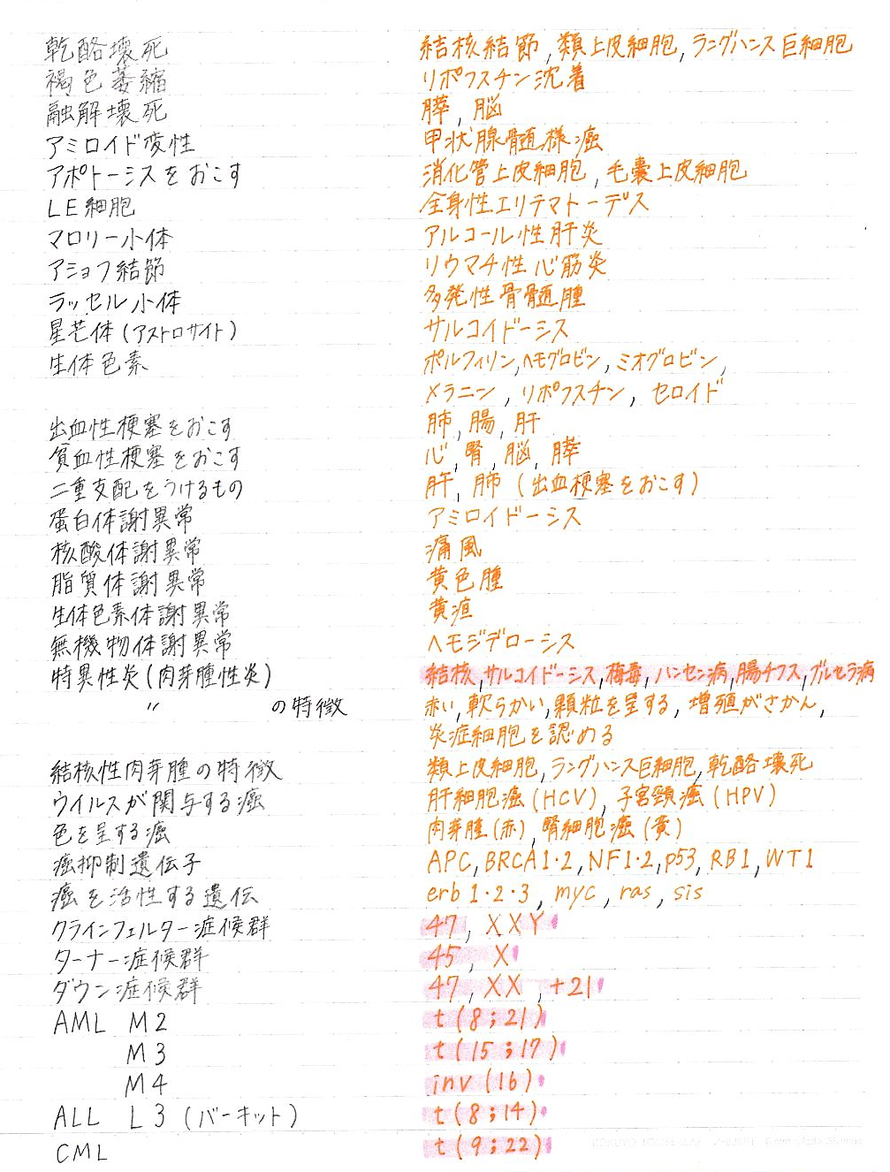 乾酪壊死 結核結節,類上皮細胞,ラングハンス巨細胞
褐色萎縮 リポフスチン沈着
融解壊死 膵,脳
アミロイド変性 甲状腺髄様癌
アポトーシスをおこす 消化管上皮細胞,毛嚢上皮細胞
LE細胞 全身性エリテマトーデス
マロリー小体 アルコール性肝炎
アショフ結節 リウマチ性心筋炎
ラッセル小体 多発性骨髄腫
星芒体(アストロサイト) サルコイドーシス
生体色素 ポルフィリン,ヘモグロビン,ミオグロビン,
メラニン,リポフスチン,セロイド
出血性梗塞をおこす 肺,腸,肝
貧血性梗塞をおこす 心,腎,脳,膵
二重支配をうけるもの 肝,肺(出血梗塞をおこす)
蛋白体謝異常 アミロイドーシス
核酸体謝異常 痛風
脂質体謝異常 黄色腫
生体色素体謝異常 黄疸
無機物体謝異常 ヘモジデローシス
特異性炎(肉芽腫性炎) 結核,サルコイドーシス,梅毒,ハンセン病,腸チフス,ブルセラ病
〃 の特徴 赤い,軟らかい,顆粒を呈する,増殖がさかん,
炎症細胞を認める
結核性肉芽腫の特徴 類上皮細胞,ラングハンス巨細胞,乾酪壊死
ウイルスが関与する癌 肝細胞癌(HCV),子宮頸癌(HPV)
色を呈する癌 肉芽腫(赤),腎細胞癌(黄)
癌抑制遺伝子 APC,BRCA1・2,NF1・2,p53,RB1,WT1
癌を活性する遺伝 erb1・2・3,myc,ras,sis
クラインフェルター症候群 47,XXY
ターナー症候群 45,X
ダウン症候群 47,XX,+21
AML M2 t(8;21)
M3 t(15;17)
M4 inv(16)
ALL L3(バーキット) t(8;14)
CML t(9;22)